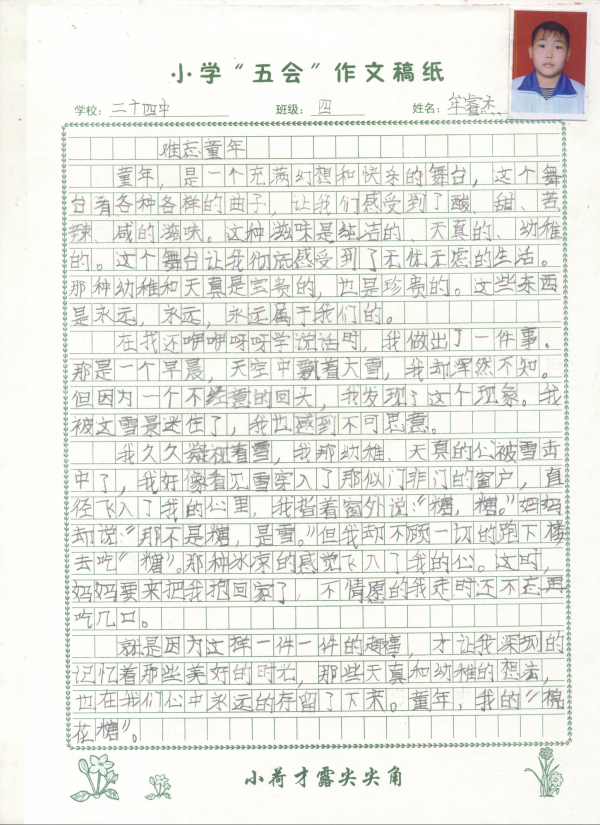 小学“五会”作文稿纸
学校：二十四中 班级：四 姓名：牟睿杰
难忘童年
童年，是一个充满幻想和快乐的舞台，这个舞
台有各种各样的曲子，让我们感受到了酸、甜、苦、
辣、咸的滋味。这种滋味是纯洁的、天真的、幼稚
的。这个舞台让我们流感受到了无忧无虑的生活。
那种幼稚和天真是宝贵的，也是珍贵的。这些东西
是永远，永远，永远属于我们的。
在我还咿咿呀呀学说话时，我做出了一件事。
那是一个早晨，天空中飘着大雪，我却浑然不知。
但因为一个不经意的回头，我发现了这个现象。我
被文雪景迷住了，我也感到不可思意。
我久久凝视着雪，我那幼稚、天真的心被雪击
中了，我好像看见雪穿入了那似门非门的窗户，直
径飞入了我的心里，我指着窗外说：“糖，糖。”妈妈
却说：“那不是糖，是雪。”但我却不顾一切的跑下楼
去吃“糖”。那种冰凉的感觉飞入了我的心。这时，
妈妈要来把我抱回家了 不情愿的我走时还不忘再
吃几口。
就是因为这样一件一件的趣事，才让我深刻的
记忆着那些美好的时光，那些天真和幼稚的想法，
也在我们心中永远的存留了下来。童年，我的“棉
花糖”。
小荷才露尖尖角